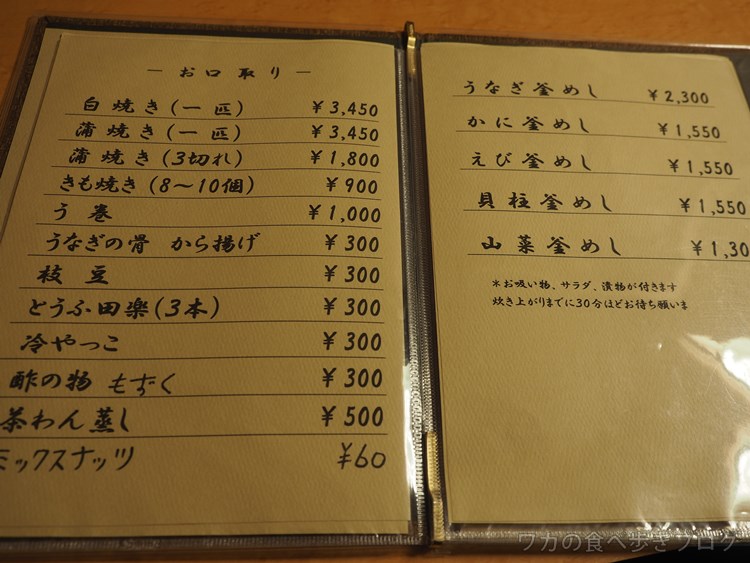 — お口取り —
白焼き(一匹) ¥3,450
蒲焼き(一匹) ¥3,450
蒲焼き(3切れ) ¥1,800
きも焼き(8〜10個) ¥900
う巻 ¥1,000
うなぎの骨 から揚げ ¥300
枝豆 ¥300
とうふ田楽(3本) ¥300
冷やっこ ¥300
酢の物 もずく ¥300
茶わん蒸し ¥500
ミックスナッツ ¥60
うなぎ釜めし ¥2,300
かに釜めし ¥1,550
えび釜めし ¥1,550
貝柱釜めし ¥1,550
山菜釜めし ¥1,30
*お吸い物、サラダ、漬物が付きます
炊き上がりまでに30分ほどお待ち願いま
ワカの食べ歩きブログ